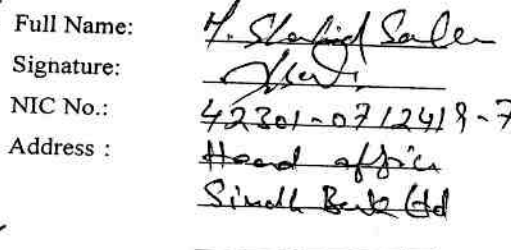 Full Name: M. Shahid Salem
Signature:
NIC No.: 42301-0712419-7
Address : Head office
Sindh Bank Ltd